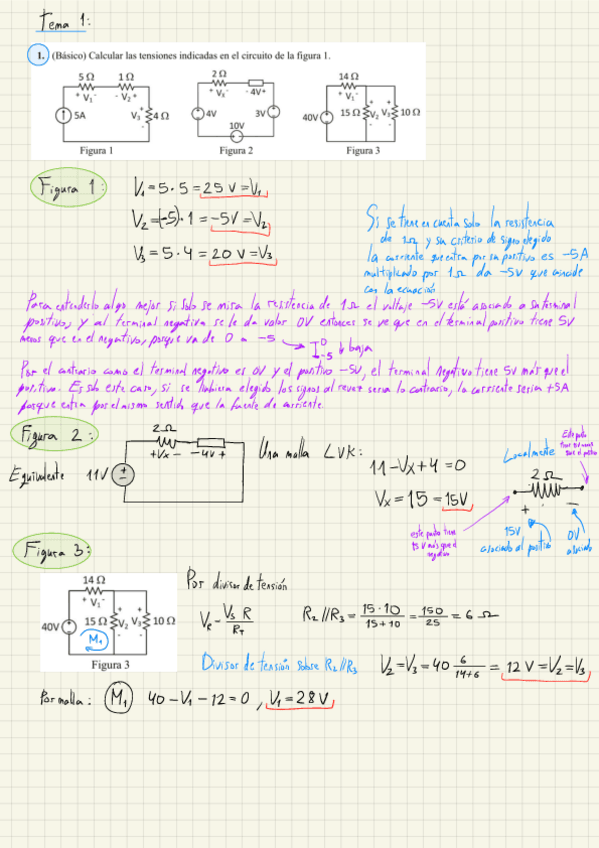 Tema 1:
1. (Básico) Calcular las tensiones indicadas en el circuito de la figura 1.
5 Ω 1 Ω
+ V1 - - V2 +
5A
V3 4 Ω
+
-
Figura 1
2 Ω
+ Vx - - 4V +
4V
3V
10V
Figura 2
14 Ω
+ V1 -
40V
15 Ω V2 V3 10 Ω
Figura 3
Figura 1:
V1 = 5 · 5 = 25 V = V1
V2 = (-5) · 1 = -5V = V2
V3 = 5 · 4 = 20 V = V3
Si se tiene en cuenta solo la resistencia
de 1Ω y su criterio de signo elegido
la corriente que entra por su positivo es -5A
multiplicado por 1Ω da -5V que coincide
con la ecuación
Para entenderlo algo mejor si solo se mira la resistencia de 1Ω el voltaje -5V está asociado a su terminal
positivo, y al terminal negativo se le da valor 0V entonces se ve que en el terminal positivo tiene 5V
menos que en el negativo, porque va de 0 a -5
0
-5
baja
Por el contrario como el terminal negativo es 0V y el positivo -5V, el terminal negativo tiene 5V más que el
positivo. Es solo este caso, si se hubiera elegido los signos al revez seria lo contrario, la corriente seria +5A
porque entra por el mismo sentido que la fuente de corriente.
Figura 2:
Equivalente
11V
2Ω
+Vx- -4V+
Una malla LVK:
11-Vx+4 = 0
Vx = 15 = 15V
Localmente
Este punto
tiene 15V menos
que el positivo
2Ω
+ -
este punto tiene
15 V más que el
negativo
15V
asociado al positivo
0V
asociado
Figura 3:
14 Ω
+ V1 -
40V
15 Ω V2 V3 10 Ω
M1
Figura 3
Por divisor de tensión
VR = VS R / RT
R2//R3 = 15·10 / 15+10 = 150 / 25 = 6 Ω
Divisor de tensión sobre R2//R3
V2 = V3 = 40 6 / 14+6 = 12 V = V2 = V3
Por malla: M1 40 - V1 - 12 = 0, V1 = 28V